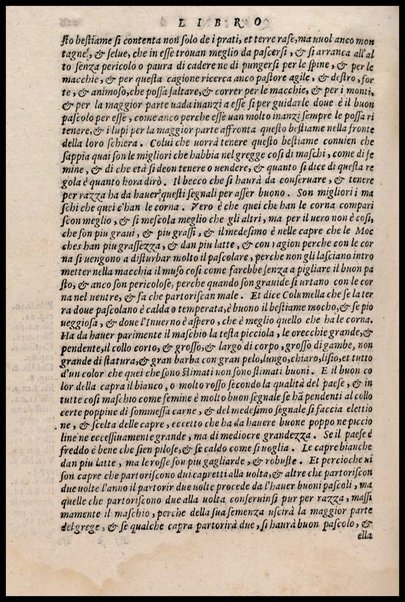 LIBRO
sto bestiame si contenta non solo de i prati, et terre rase, ma vuol anco mon
tagne, & selue, che in esse trouan meglio da pascersi, & si arranca all'al
to senza pericolo o paura di cadere ne di pungersi per le spine, & per le
macchie, & per questa cagione ricerca anco pastore agile, & destro, for
te, & animoso, che possa saltare, & correr per le macchie, & per i monti,
& per la maggior parte uada inanzi a esse si per guidarle doue è il buon
pascolo per esse, come anco perche esse uan molto inanzi sempre le possa ri
tenere, & i lupi per la maggior parte affronta questo bestiame nella fronte
della loro schiera. Colui che uorrà tenere questo bestiame conuien che
sappia quai son le migliori che habbia nel gregge cosi di maschi, come di fe
mine, & di che età si deon tenere o uendere, & quanto si dice di questa re
gola è quanto hora dirò. Il becco che si haurà da conseruare, & tenere
per razza ha da hauer questi segnali per asser buono. Son migliori i ma
schi che quei c'han le corna. Vero è che quei che han le corna compari
scon meglio, & si mescola meglio che gli altri, ma per il uero non è cosi,
che son piu graui, & piu grassi, & il medesimo è nelle capre che le Moc
ches han piu grassezza, & dan piu latte, & con ragion perche con le cor
na si uengono a disturbar molto il pascolare, perche non gli lasciano intro
metter nella macchia il muso cosi come farebbe senza a pigliare il buon pa
sto, & anco son pericolose, perche quando son grauide si urtano con le cor
na nel uentre, & fa che partoriscan male. Et dice Columella che se la ter
ra doue pascolano è calda o temperata, è buono il bestiame mocho, & se pio
ueggiosa, & doue l'Inuerno è aspero, che è meglio quello che ha le corna.
Ha da hauer parimente il maschio la testa picciola, le orecchie grande, &
pendente, il collo corto, & grosso, & largo di corpo, grosso di gambe, non
grande di statura, & gran barba con gran pelo, lungo, chiaro, liscio, et tutto
d'un color che quei che sono stimati non son stimati buoni. E il buon co
lor della capra il bianco, o molto rosso secondo la qualità del paese, & in
tutte cosi maschio come femine è molto buon segnale se hã pendenti al collo
certe poppine di sommessa carne, & del medesimo segnale si faccia elettio
ne, & scelta delle capre, eccetto che ha da hauere buone poppe ne piccio
line ne eccessiuamente grande, ma di mediocre grandezza. Se il paese è
freddo è bene che sien pilose, & se caldo come si uoglia. Le capre bianche
dan piu latte, ma le rosse son piu gagliarde, & robuste. Et percioche ui
son capre che partoriscono dui capretti alla uolta, & altre che partoriscon
due uolte l'anno il partorir due uolte procede da l'hauer buoni pascoli, ma
quelle che partoriscono due alla uolta conseruinsi pur per razza, massi
mamente il maschio, perche della sua semenza uscirà la maggior parte
del grege, & se qualche capra partorirà due, si haurà buon pascolo, &
ella